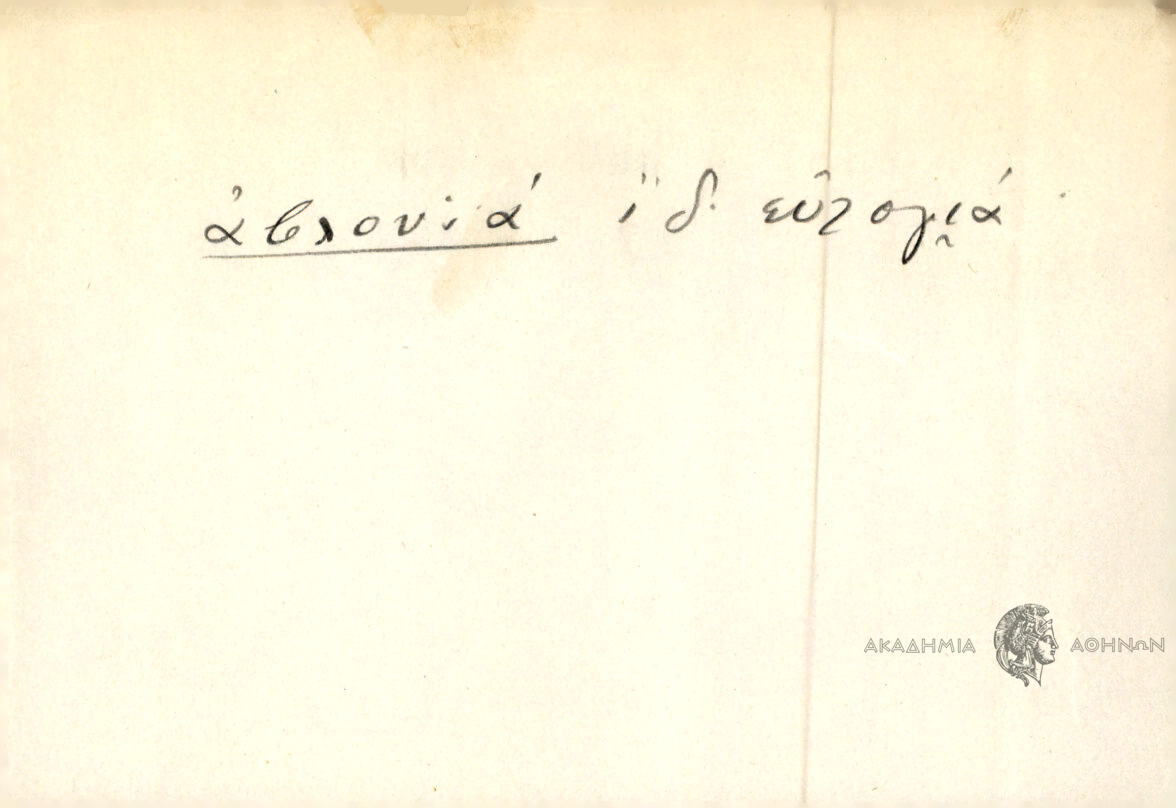 ἀβλονιά ἰδ. εὐλογι̯ά
ΑΚΑΔΗΜΙΑ ΑΘΗΝΩΝ